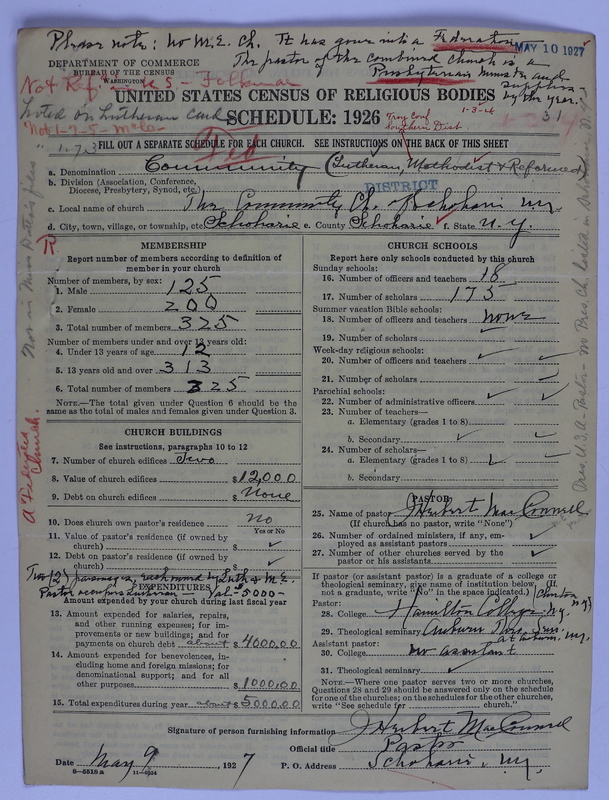 Please note: No M.E. Ch. It has gone into a Federation
MAY 10 1927
The pastor of the combined church is a
Presbyterian minister and
supplies
by the year.
DEPARTMENT OF COMMERCE
BUREAU OF THE CENSUS
WASHINGTON
UNITED STATES CENSUS OF RELIGIOUS BODIES
Listed on Lutheran card
SCHEDULE: 1926
Troy Conf
Southern Dist
1-3-4
31
Not 1-7-5-
1-7-3
Fed
FILL OUT A SEPARATE SCHEDULE FOR EACH CHURCH. SEE INSTRUCTIONS ON THE BACK OF THIS SHEET
a. Denomination Community (Lutheran, Methodist & Reformed)
b. Division (Association, Conference,
Diocese, Presbytery, Synod, etc.)
DISTRICT
c. Local name of church The Community Ch. Schoharie N.Y.
d. City, town, village, or township, etc. Schoharie e. County Schoharie f. State N.Y.
R.
MEMBERSHIP
Report number of members according to definition of
member in your church
Number of members, by sex:
1. Male 125
2. Female 200
3. Total number of members 325
Number of members under and over 13 years old:
4. Under 13 years of age 12
5. 13 years old and over 313
6. Total number of members 325
NOTE.—The total given under Question 6 should be the
same as the total of males and females given under Question 3.
A Federated
Church.
CHURCH BUILDINGS
See instructions, paragraphs 10 to 12
7. Number of church edifices Two
8. Value of church edifices $12,000
9. Debt on church edifices $None
10. Does church own pastor's residence No
Yes or No
11. Value of pastor's residence (if owned by
church) $ ✓
12. Debt on pastor's residence (if owned by
church) $ ✓
Two (2) parsonages, each owned by Luth & M.E.
Pastor occupies Lutheran - Val= 5000-
EXPENDITURES
Amount expended by your church during last fiscal year
13. Amount expended for salaries, repairs,
and other running expenses; for im-
provements or new buildings; and for
payments on church debt about $4000.00
14. Amount expended for benevolences, in-
cluding home and foreign missions; for
denominational support; and for all
other purposes $1000.00
15. Total expenditures during year about $5000.00
CHURCH SCHOOLS
Report here only schools conducted by this church
Sunday schools:
16. Number of officers and teachers 18
17. Number of scholars 175
Summer vacation Bible schools:
18. Number of officers and teachers none
19. Number of scholars ✓
Week-day religious schools:
20. Number of officers and teachers ✓
21. Number of scholars ✓
Parochial schools:
22. Number of administrative officers ✓
23. Number of teachers—
a. Elementary (grades 1 to 8)
b. Secondary ✓
24. Number of scholars—
a. Elementary (grades 1 to 8) ✓
b. Secondary
PASTOR
25. Name of pastor J Herbert MacConnell
(If church has no pastor, write "None")
26. Number of ordained ministers, if any, em-
ployed as assistant pastors ✓
27. Number of other churches served by the
pastor or his assistants ✓
If pastor (or assistant pastor) is a graduate of a college or
theological seminary, give name of institution below. (If
not a graduate, write "No" in the space indicated.)
Pastor:
28. College Hamilton College, N.Y. (Clinton N.Y.)
29. Theological seminary Auburn Theo. Sem.
at Auburn, N.Y.
Assistant pastor:
30. College no assistant
31. Theological seminary ✓
NOTE.—Where one pastor serves two or more churches,
Questions 28 and 29 should be answered only on the schedule
for one of the churches; on the schedules for the other churches,
write "See schedule for church."
Signature of person furnishing information J Herbert MacConnell
Official title Pastor
Date May 9, 1927
P. O. Address Schoharie, N.Y.
8-5518a 11-6024